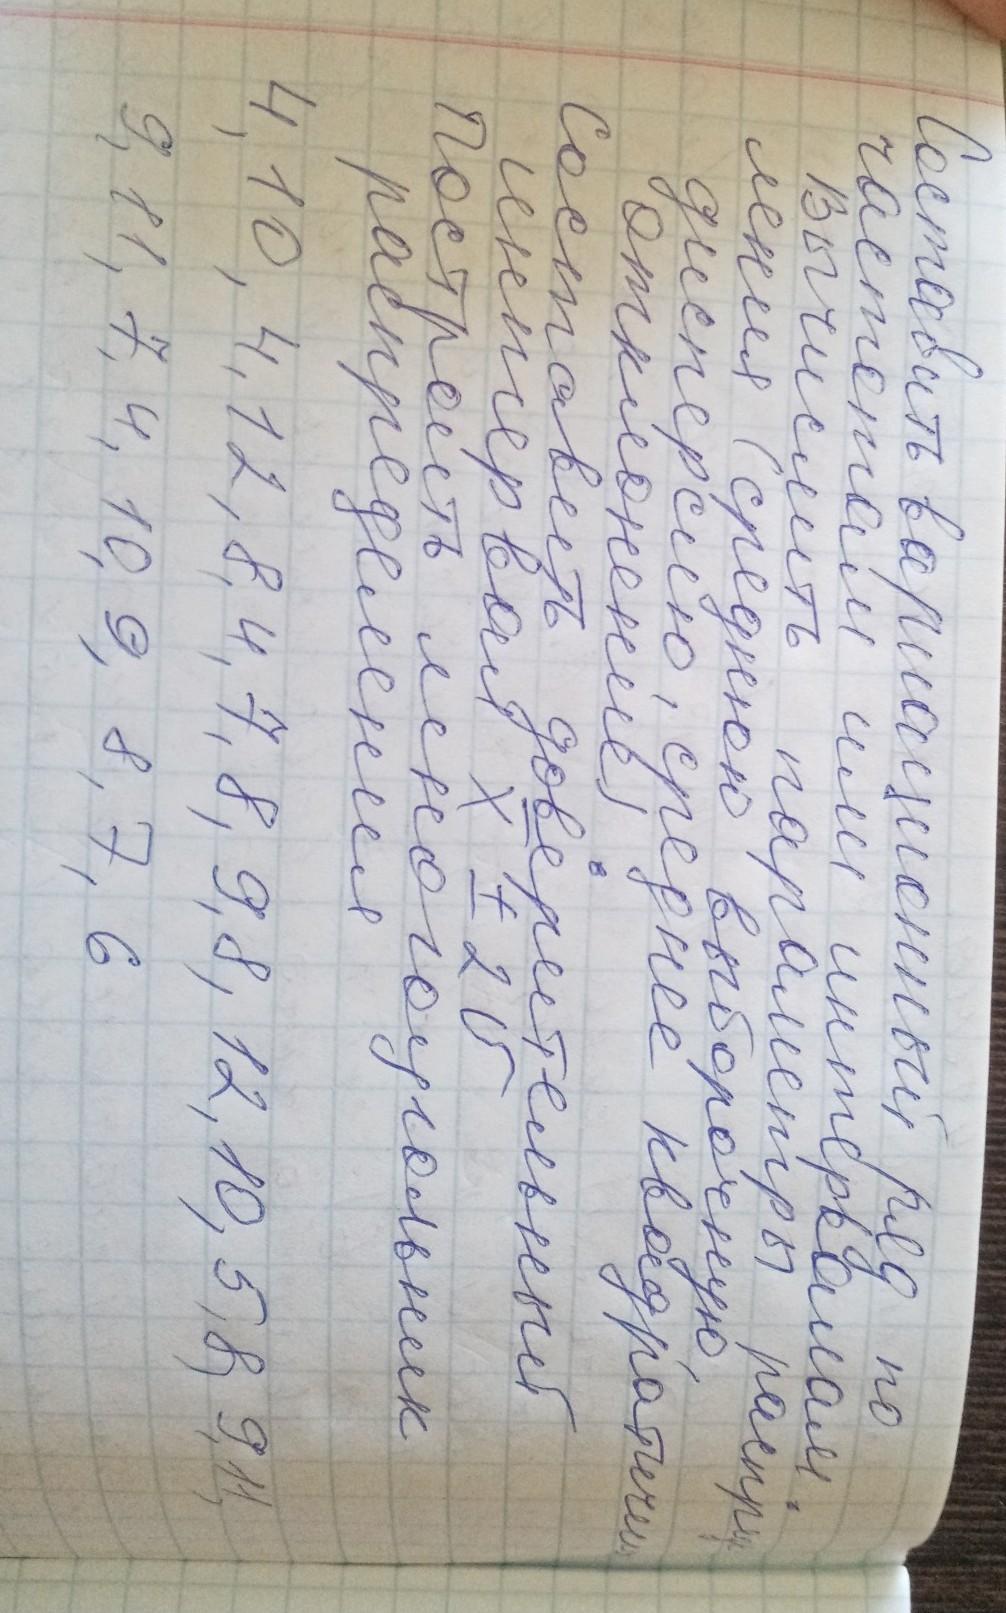 Составить вариационный ряд по
частотам или интервалам.
Вычислить параметры распр
ления (среднюю выборочную,
дисперсию, среднее квадратичн
отклонение)
Составить доверительный
интервал X ± 2σ
Построить многоугольник
распределения
4, 10, 4, 12, 8, 4, 7, 8, 9, 8, 12, 10, 5, 8, 9, 11,
9, 11, 7, 4, 10, 9, 8, 7, 6